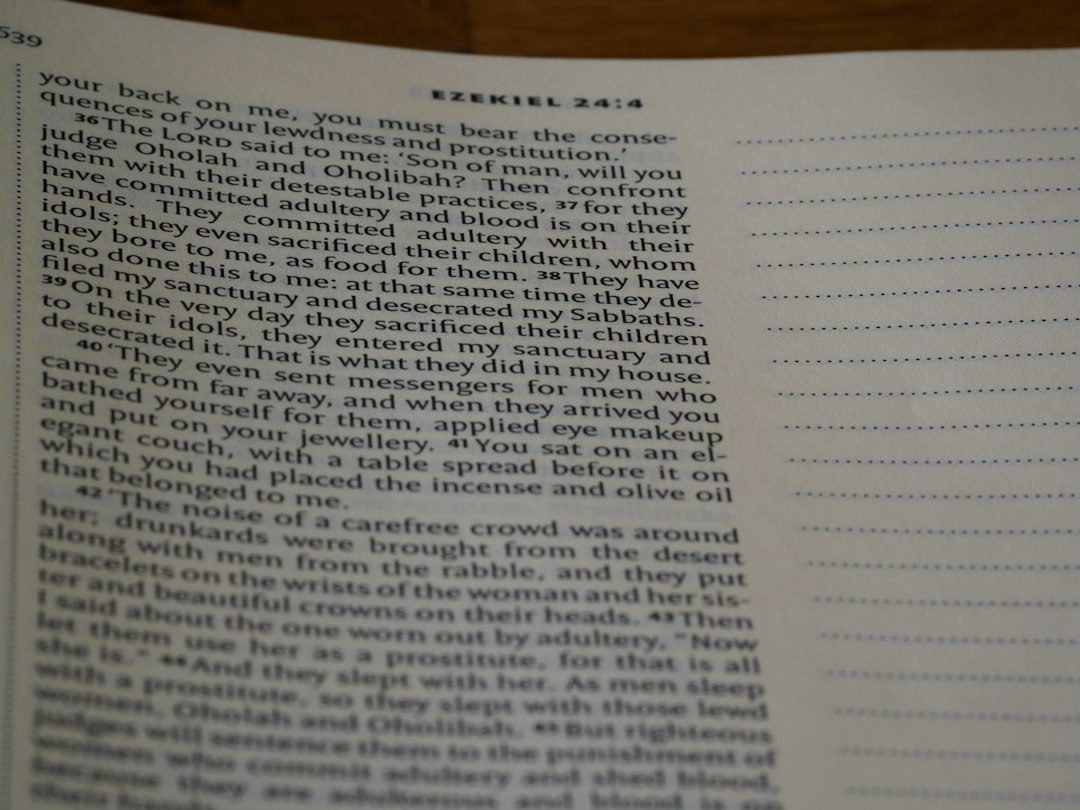 539
EZEKIEL 24:4
your back on me, you must bear the conse-
quences of your lewdness and prostitution.’
36 The LORD said to me: ‘Son of man, will you
judge Oholah and Oholibah? Then confront
them with their detestable practices, 37 for they
have committed adultery and blood is on their
hands. They committed adultery with their
idols; they even sacrificed their children, whom
they bore to me, as food for them. 38 They have
also done this to me: at that same time they de-
filed my sanctuary and desecrated my Sabbaths.
39 On the very day they sacrificed their children
to their idols, they entered my sanctuary and
desecrated it. That is what they did in my house.
40 ‘They even sent messengers for men who
came from far away, and when they arrived you
bathed yourself for them, applied eye makeup
and put on your jewellery. 41 You sat on an el-
egant couch, with a table spread before it on
which you had placed the incense and olive oil
that belonged to me.
42 ‘The noise of a carefree crowd was around
her; drunkards were brought from the desert
along with men from the rabble, and they put
bracelets on the wrists of the woman and her sis-
ter and beautiful crowns on their heads. 43 Then
I said about the one worn out by adultery, “Now
let them use her as a prostitute, for that is all
she is.” 44 And they slept with her. As men sleep
with a prostitute, so they slept with those lewd
women, Oholah and Oholibah. 45 But righteous
judges will sentence them to the punishment of
women who commit adultery and shed blood,
because they are adulterous and blood is on
their hands.